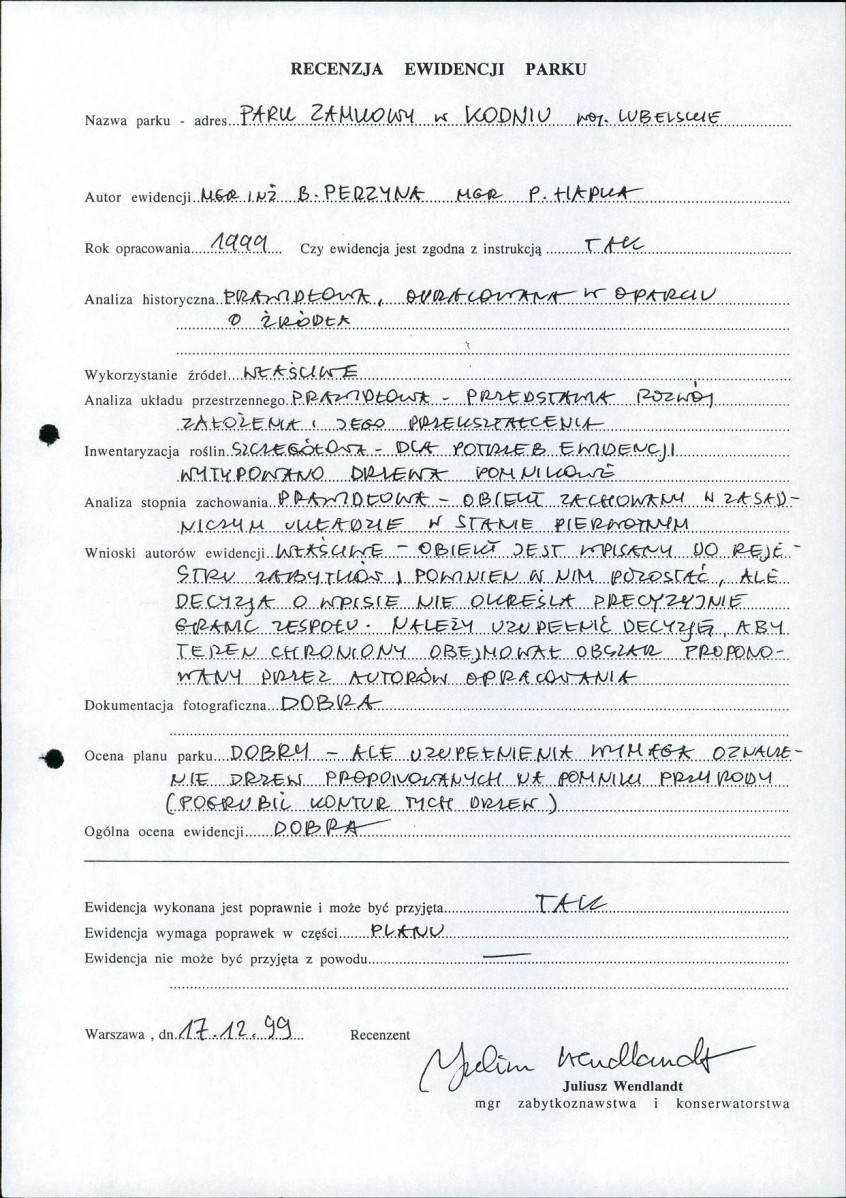 RECENZJA EWIDENCJI PARKU
Nazwa parku - adres PARK ZAMKOWY w KODNIU woj. LUBELSKIE
Autor ewidencji MGR INŻ B. PERZYNA MGR P. HAPKA
Rok opracowania 1999 Czy ewidencja jest zgodna z instrukcją TAK
Analiza historyczna PRAWIDŁOWA, OPRACOWANA W OPARCIU
O ŹRÓDŁA
Wykorzystanie źródeł WŁAŚCIWE
Analiza układu przestrzennego PRAWIDŁOWA - PRZEDSTAWIA ROZWÓJ
ZAŁOŻENIA I JEGO PRZEKSZTAŁCENIA
Inwentaryzacja roślin SZCZEGÓŁOWA - DLA POTRZEB EWIDENCJI
WYTYPOWANO DRZEWA POMNIKOWE
Analiza stopnia zachowania PRAWIDŁOWA - OBIEKT ZACHOWANY W ZASAD-
NICZYM UKŁADZIE W STANIE PIERWOTNYM
Wnioski autorów ewidencji WŁAŚCIWE - OBIEKT JEST WPISANY DO REJE-
STRU ZABYTKÓW I POWINIEN W NIM POZOSTAĆ, ALE
DECYZJA O WPISIE NIE OKREŚLA PRECYZYJNIE
GRANIC ZESPOŁU. NALEŻY UZUPEŁNIĆ DECYZJĘ, ABY
TEREN CHRONIONY OBEJMOWAŁ OBSZAR PROPONO-
WANY PRZEZ AUTORÓW OPRACOWANIA
Dokumentacja fotograficzna DOBRA
Ocena planu parku DOBRY - ALE UZUPEŁNIENIA WYMAGA OZNACZE-
NIE DRZEW PROPONOWANYCH NA POMNIKI PRZYRODY
(POGRUBIĆ KONTUR TYCH DRZEW)
Ogólna ocena ewidencji DOBRA
Ewidencja wykonana jest poprawnie i może być przyjęta TAK
Ewidencja wymaga poprawek w części PLANU
Ewidencja nie może być przyjęta z powodu —
Warszawa , dn. 17.12.99 Recenzent
Juliusz Wendlandt
Juliusz Wendlandt
mgr zabytkoznawstwa i konserwatorstwa